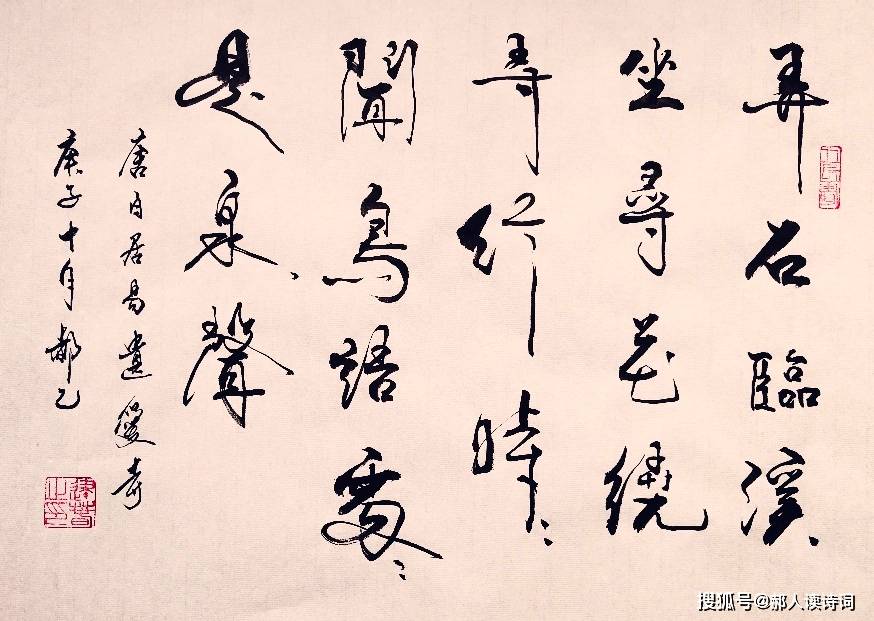 弄石臨溪
坐尋花繞
寺行時〻
聞鳥語處〻
是泉聲
唐白居易遺愛寺
庚子十月郝
搜狐号@郝人读诗词